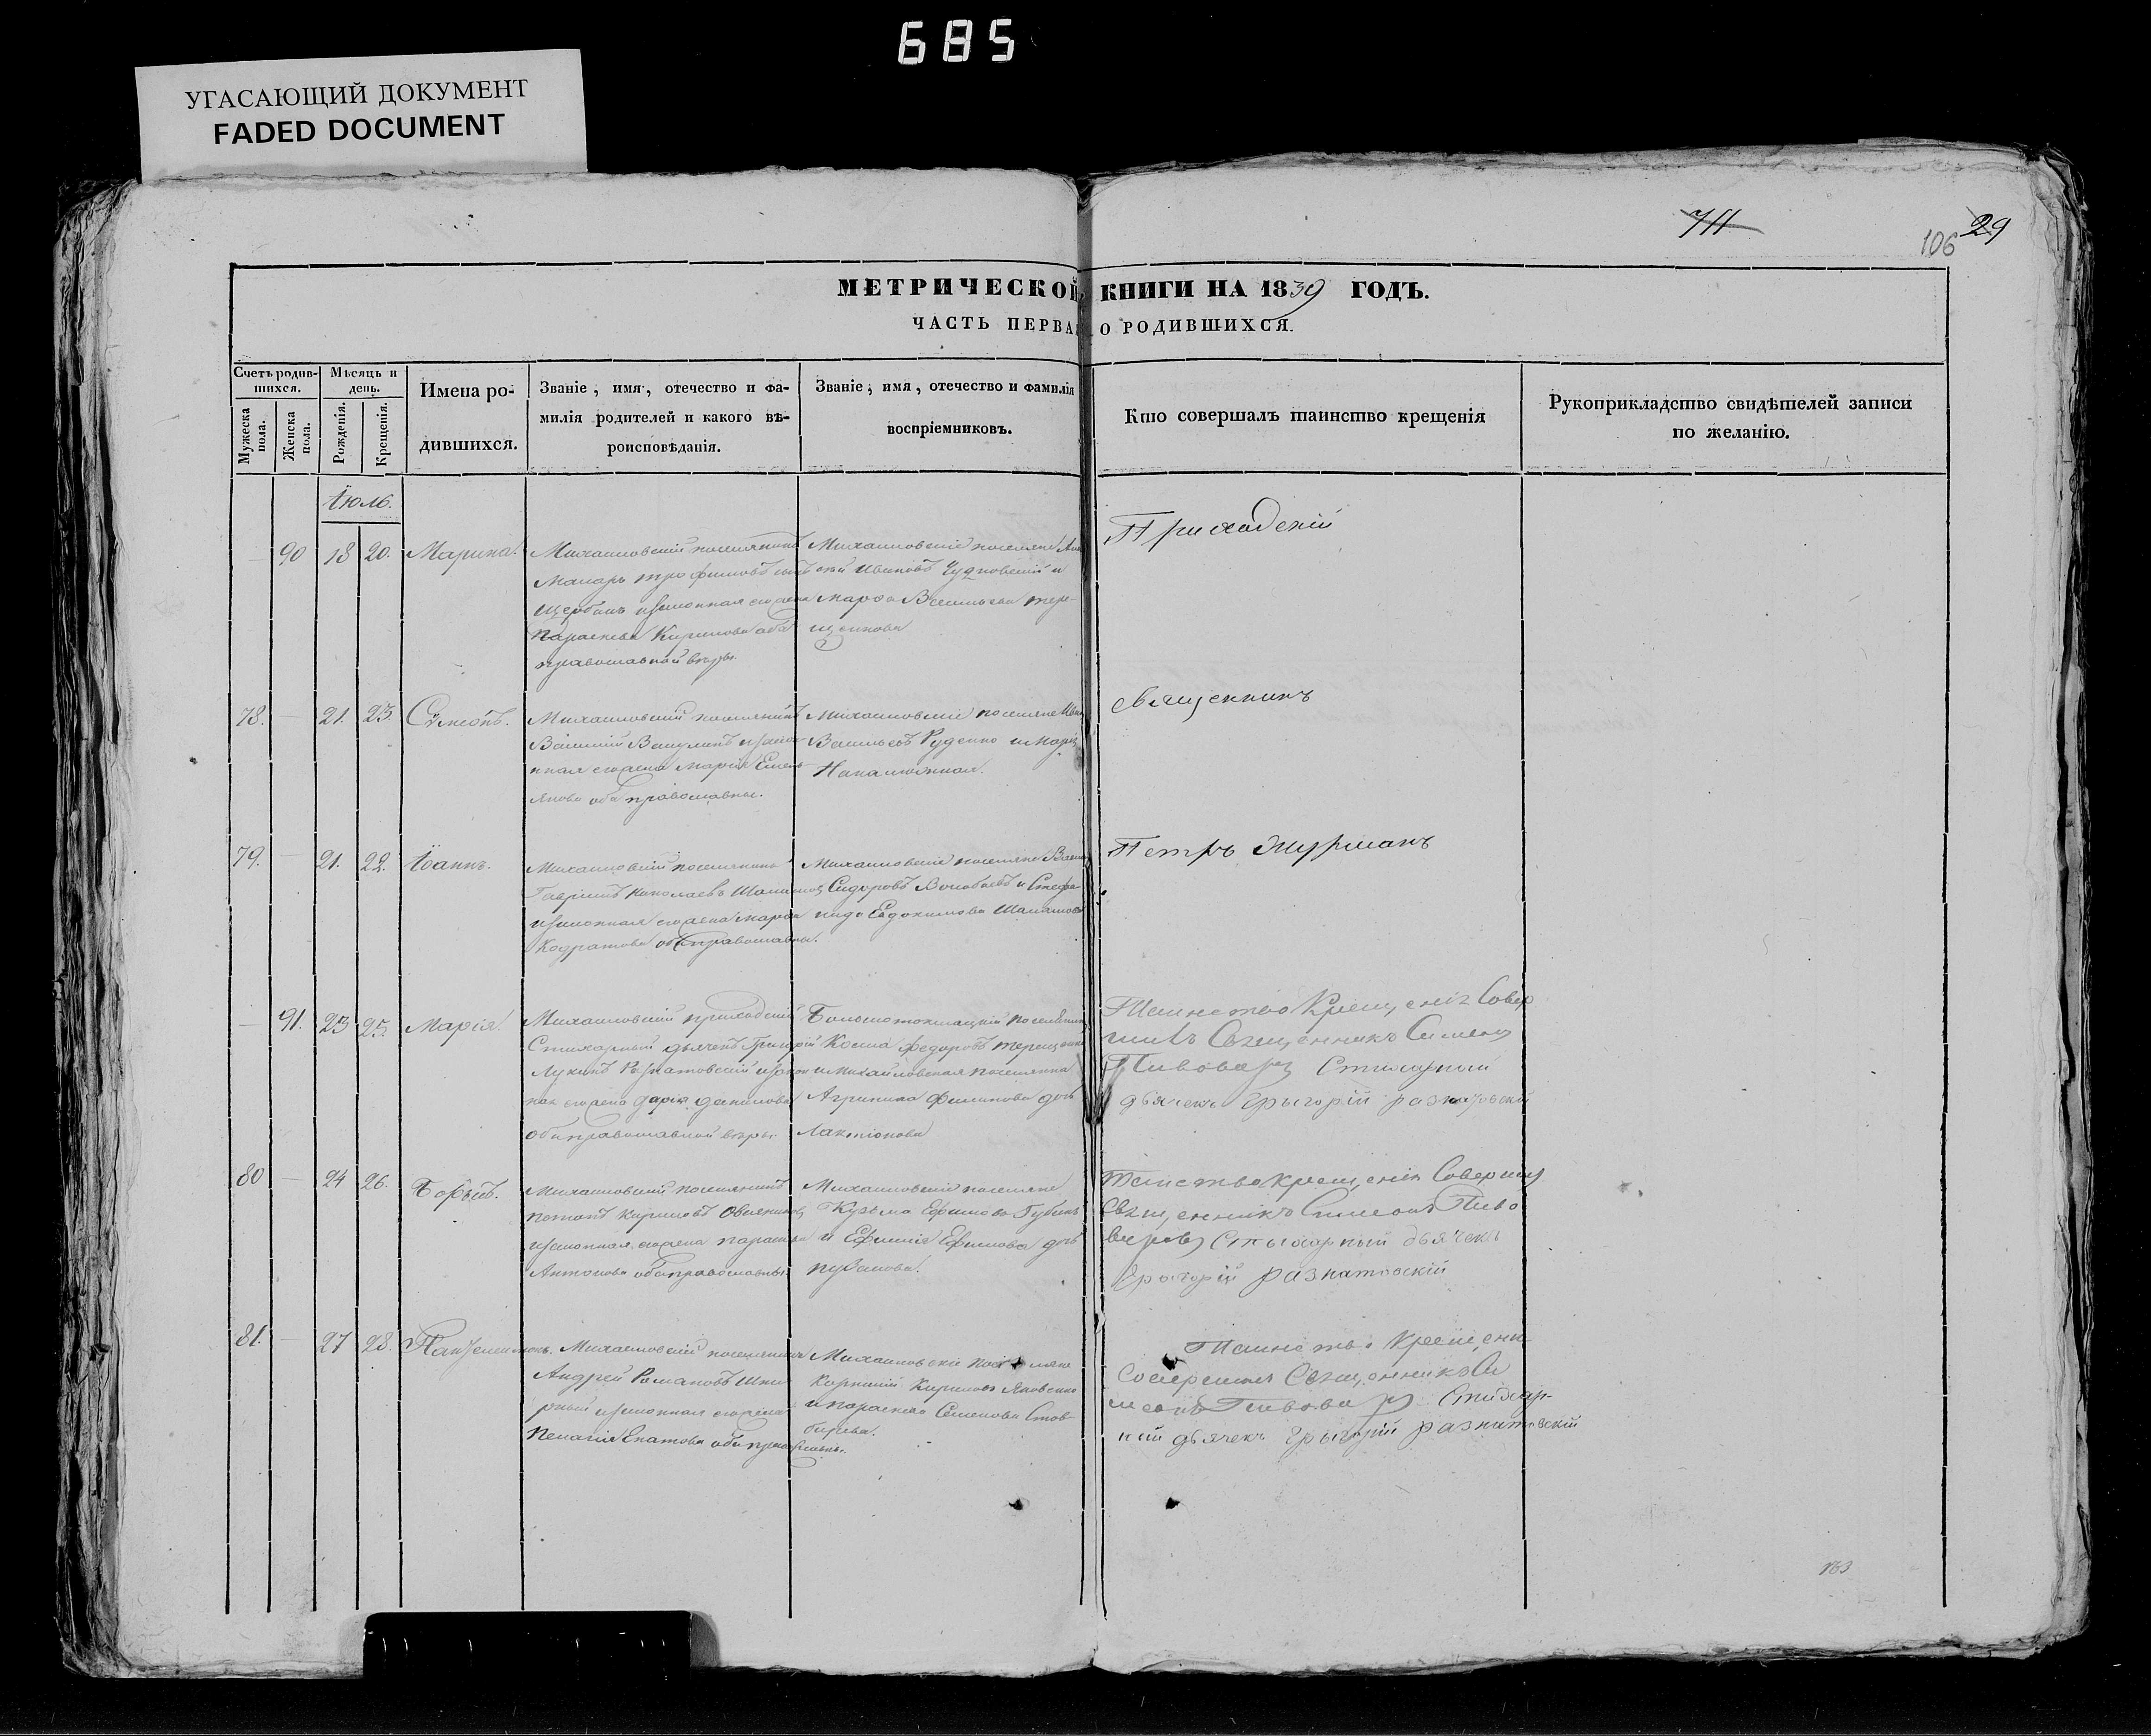 685
УГАСАЮЩИЙ ДОКУМЕНТ
FADED DOCUMENT
711
106 29
МЕТРИЧЕСКОЙ КНИГИ НА 1839 ГОДЪ.
ЧАСТЬ ПЕРВАЯ О РОДИВШИХСЯ.
Счетъ родив-
шихся.
Мѣсяцъ и
день.
Мужеска
пола.
Женска
пола.
Рожденія.
Крещенія.
Имена ро-
дившихся.
Званіе, имя, отечество и фа-
милія родителей и какого вѣ-
роисповѣданія.
Званіе, имя, отечество и фамилія
воспріемниковъ.
Кто совершалъ таинство крещенія
Рукоприкладство свидѣтелей записи
по желанію.
Іюль.
— 90 18 20. Марина.
Михаиловскій поселянинъ
Макарь Трофимовъ сынъ
Щербакъ изаконная жена
Параскева Кирилова оба
православной вѣры.
Михаиловскіе поселяне
Ивановъ Чудновскій и
Марѳа Васильева Тере-
щенкова
Приходскій
78. — 21. 23. Сѵмеонъ.
Михаиловскій поселянинъ
Василій Вакуленъ изакон-
ная жена Марія Емель-
янова оба православны.
Михаиловскіе поселяне Иванъ
Васильевъ Руденко и Марія
Накалюжная.
священникъ
79. — 21. 22. Іоаннъ.
Михаиловскій поселянинъ
Гавріилъ Николаевъ
изаконная жена Марѳа
Кодратова оба православны.
Михаиловскіе поселяне
Сидоровъ и Стефа-
нида Евдокимова
Петръ Журманъ
— 91. 23 25. Марія.
Михаиловскій приходскій
Стихарный дьячекъ Григорій
Лукинъ Разнатовскій изакон
ная жена Дарія Данилова
оба православной вѣры.
Большотокмацкій поселянинъ
Косма Федоровъ Терещенко
и Михайловская поселянка
Агрипина Филипова дочь
Лактіонова
Таинство Крещенія Совер
шилъ Священникъ Симеонъ
Пивоваръ Стихарный
дьячекъ Грыгорій разнатовскій
80 — 24 26. Борысъ.
Михаиловскій поселянинъ
Потапъ Кириловъ Овсяниковъ
изаконная жена Параскева
Антонова оба православны.
Михаиловскіе поселяне
Кузьма Ефимовъ Губинъ
и Ефимія Ефимова дочь
Пузанова.
Таинство крещенія Совершилъ
Священникъ Симеонъ Пиво
варовъ Стыхарный дьячекъ
Грыгорій разнатовскій
81. — 27 28. Пантелеимонъ.
Михаиловскій поселянинъ
Андрей Романовъ
изаконная жена
Пелагія Игнатова оба православны.
Михаиловскіе поселяне
Корнилій Кириловъ Яковенко
и Параскева Семенова
Таинство Крещенія
Совершилъ Священникъ Си
меонъ Пивоваръ Стихар-
ный дьячекъ Грыгорій разнатовскій
163